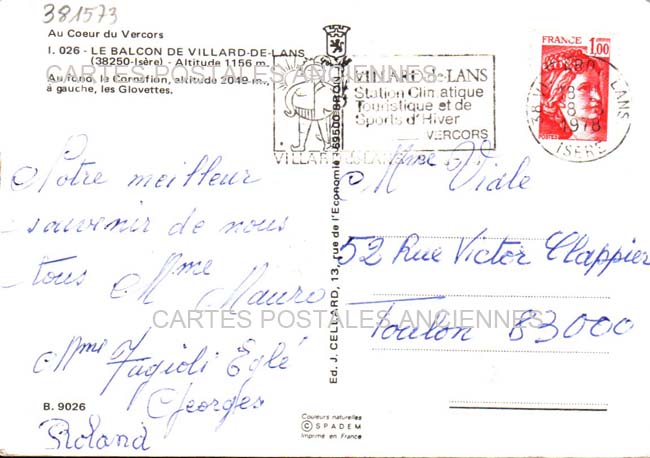 381573
Au Coeur du Vercors
I. 026 - LE BALCON DE VILLARD-DE-LANS
(38250-Isère) - Altitude 1156 m.
Au fond, la Cornafion, altitude 2049 m.,
à gauche, les Glovettes.
CARTES POSTALES ANCIENNES
VILLARD-de-LANS
Station Climatique
Touristique et de
Sports d'Hiver
VERCORS
VILLARD-DE-LANS
FRANCE
1,00
POSTES
LANS
1978
ISERE
Notre meilleur
souvenir de nous
tous Mme Mauro
Mme Fagioli Eglé
Georges
Roland
Ed. J. CELLARD, 13, rue de l'Economie 69500 BRON
Mme Viale
52 Rue Victor Clappier
Toulon 83000
CARTES POSTALES ANCIENNES
B. 9026
Couleurs naturelles
© SPADEM
Imprimé en France